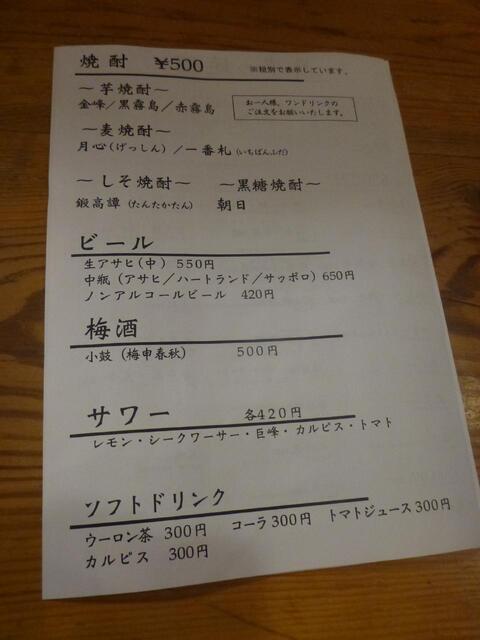 焼酎 ¥500 ※税別で表示しています。
～芋焼酎～
金峰／黒霧島／赤霧島
お一人様、ワンドリンクの
ご注文をお願いいたします。
～麦焼酎～
月心(げっしん) /一番札(いちばんふだ)
～しそ焼酎～ ～黒糖焼酎～
鍛高譚 (たんたかたん) 朝日
ビール
生アサヒ(中) 550円
中瓶 (アサヒ／ハートランド／サッポロ) 650円
ノンアルコールビール 420円
梅酒
小鼓 (梅申春秋) 500円
サワー 各420円
レモン・シークワーサー・巨峰・カルピス・トマト
ソフトドリンク
ウーロン茶 300円 コーラ300円 トマトジュース300円
カルピス 300円